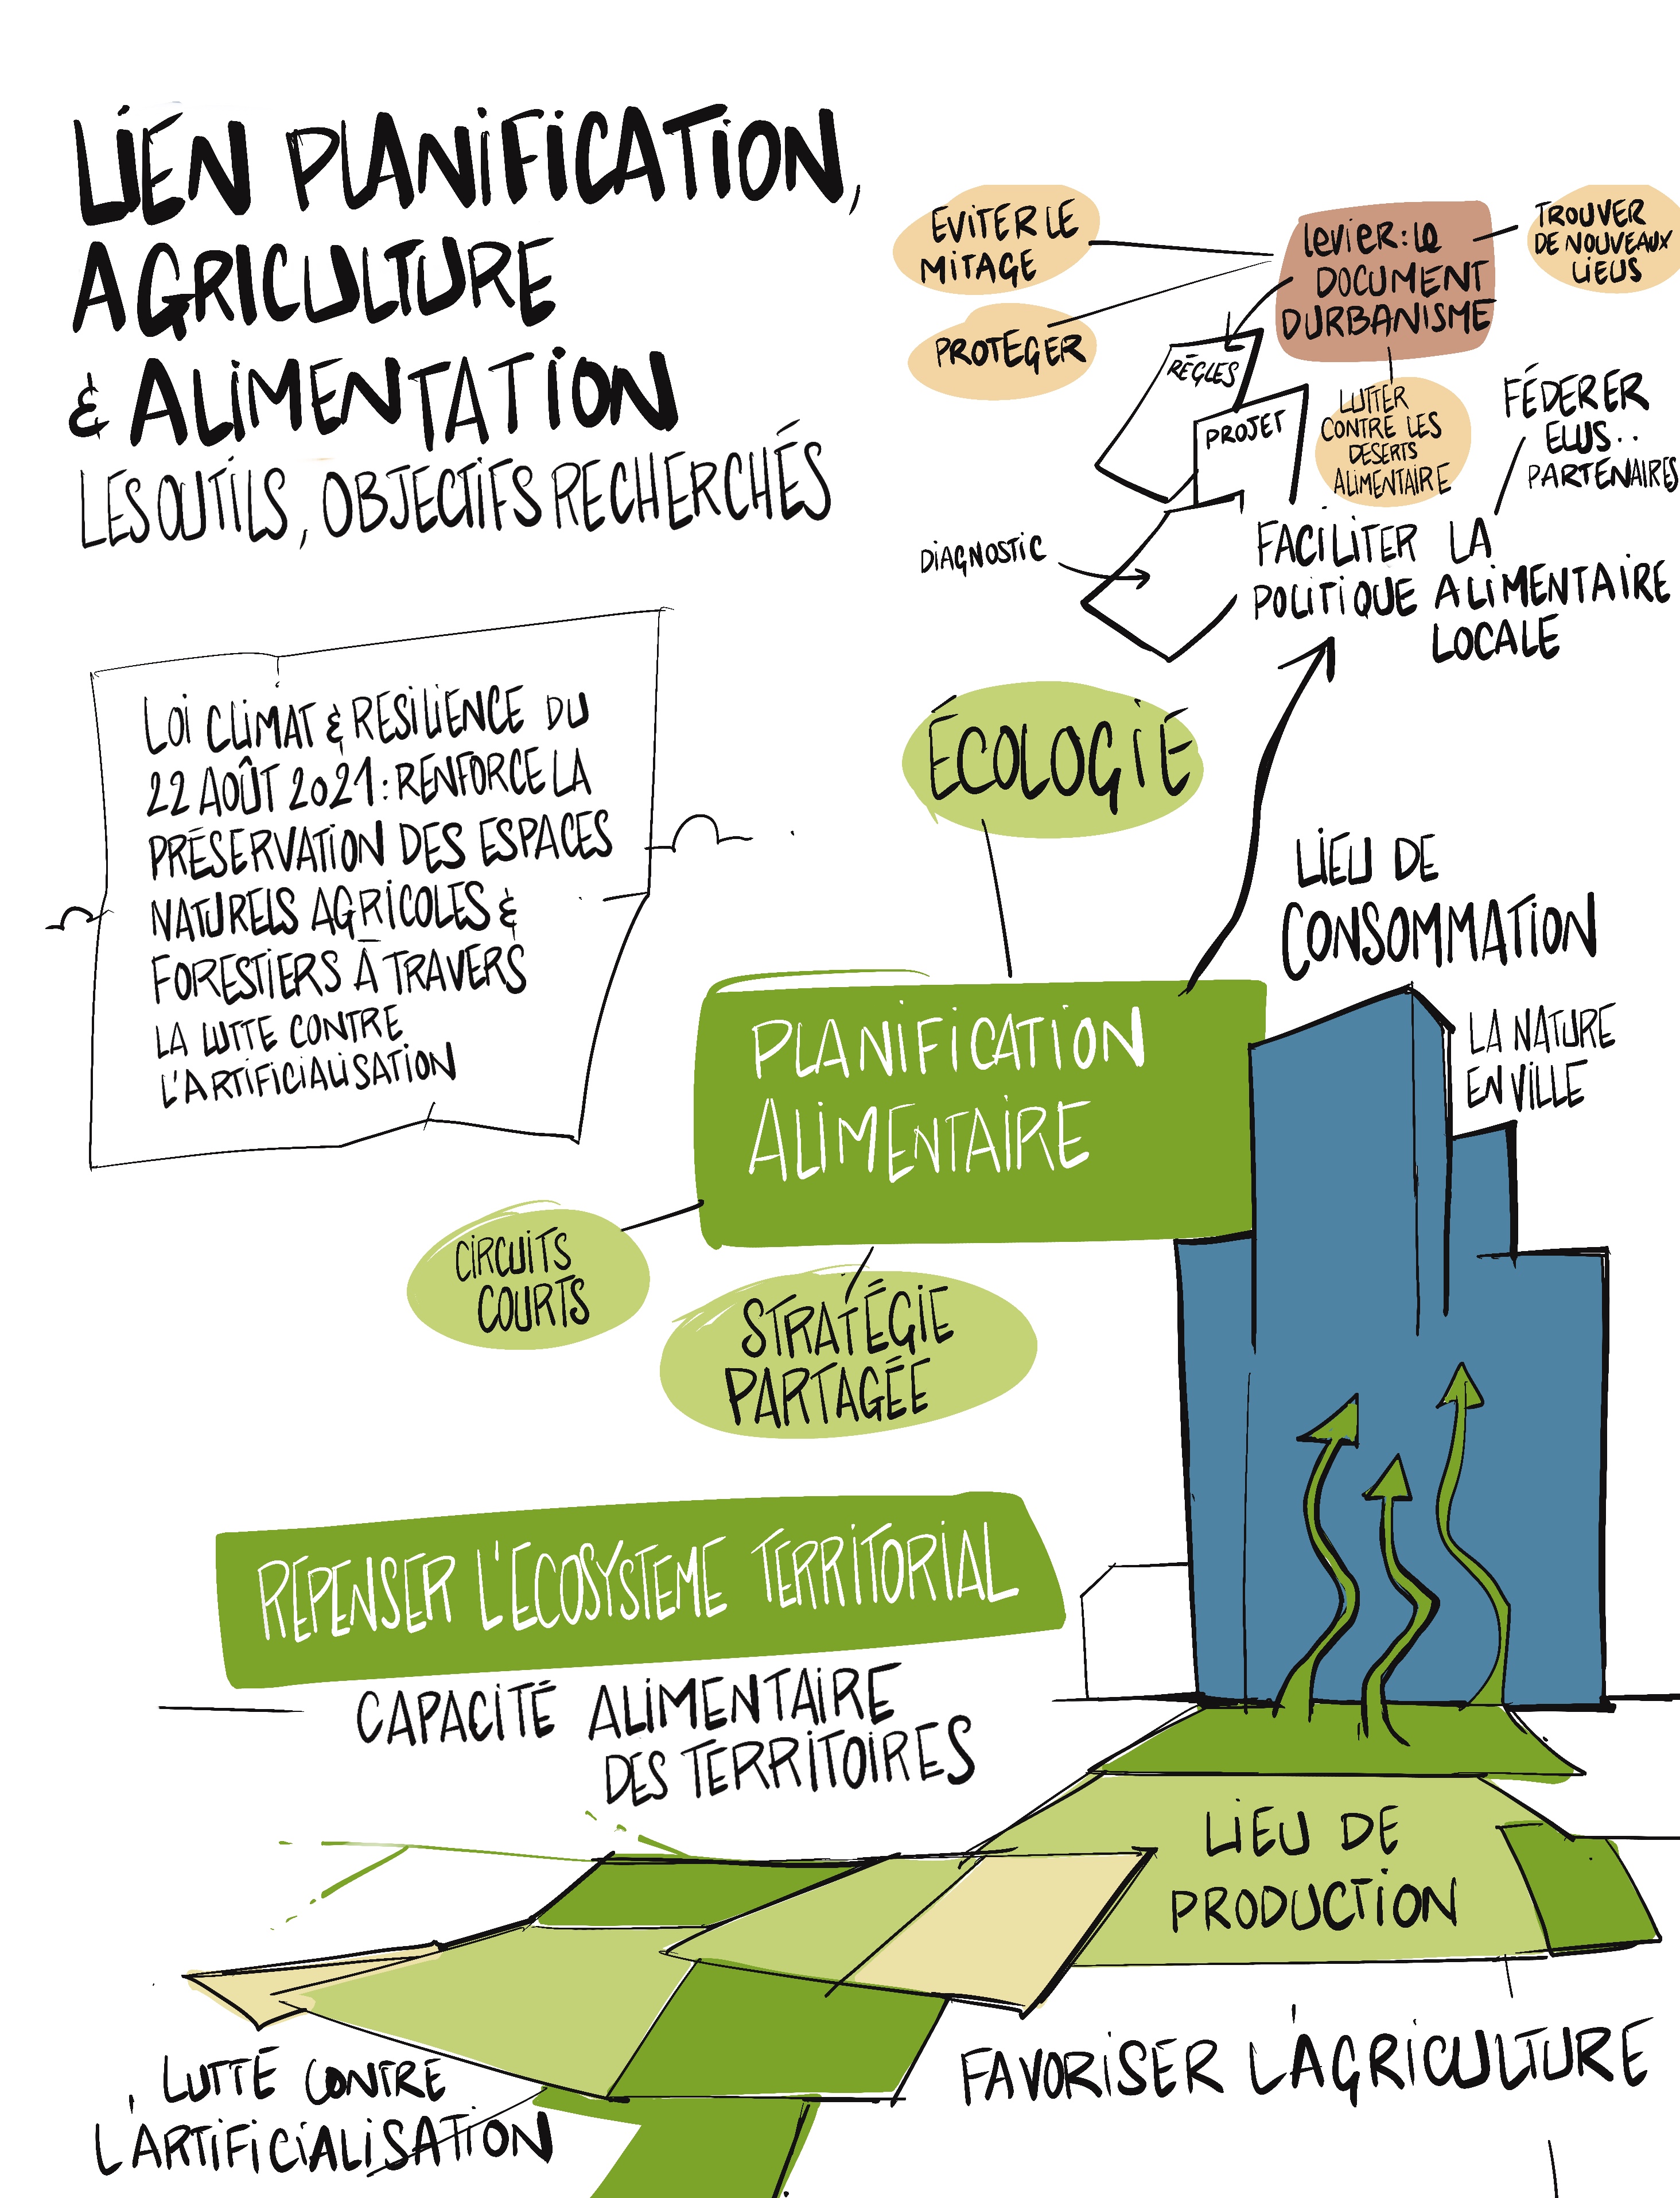 LIEN PLANIFICATION,
AGRICULTURE
& ALIMENTATION
LES OUTILS, OBJECTIFS RECHERCHÉS
EVITER LE
MITAGE
PROTEGER
levier: le
DOCUMENT
DURBANISME
TROUVER
DE NOUVEAUX
LIEUS
RÉGLES
PROJET
LUTTER
CONTRE LES
DESERTS
ALIMENTAIRE
FÉDERER
ELUS..
PARTENAIRES
DIAGNOSTIC
FACILITER LA
POLITIQUE ALIMENTAIRE
LOCALE
LOI CLIMAT & RESILIENCE DU
22 AOÛT 2021: RENFORCE LA
PRÉSERVATION DES ESPACES
NATURELS AGRICOLES &
FORESTIERS À TRAVERS
LA LUTTE CONTRE
L'ARTIFICIALISATION
ÉCOLOGIE
LIEU DE
CONSOMMATION
LA NATURE
EN VILLE
PLANIFICATION
ALIMENTAIRE
CIRCUITS
COURTS
STRATÉGIE
PARTAGÉE
REPENSER L'ECOSYSTEME TERRITORIAL
CAPACITÉ ALIMENTAIRE
DES TERRITOIRES
LIEU DE
PRODUCTION
LUTTE CONTRE
L'ARTIFICIALISATION
FAVORISER L'AGRICULTURE